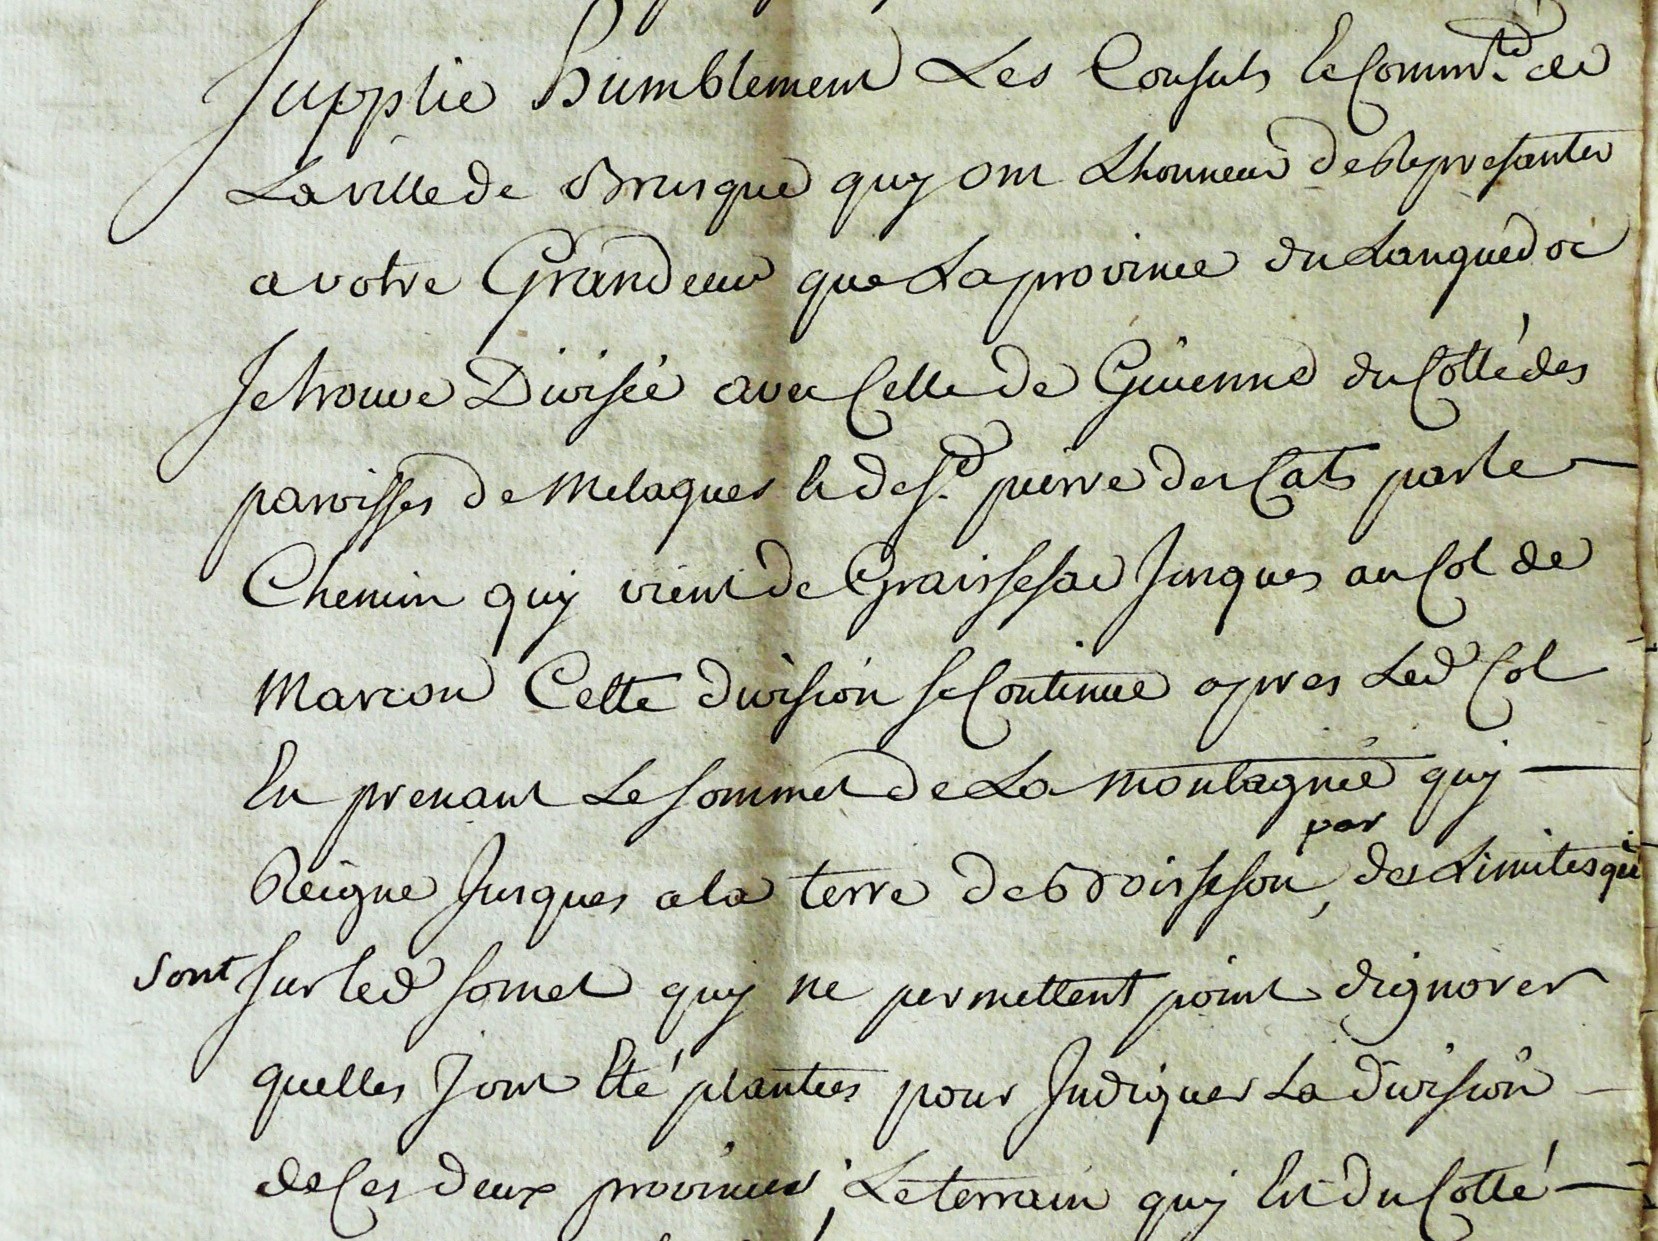 Supplie humblement Les Consuls et Comm.té de
La ville de Brusque quy ont Lhonneur de Representer
a votre Grandeur que La province du Languedoc
se trouve Divisée avec Celle de Guienne du Cotté des
paroisses de Melagues et de S.t pierre des Cats par le
Chemin quy vient de Graissesac Jusques au Col de
Marcou Cette division se Continue apres Led Col
En prenant Le sommet de La montagne quy
par
Reigne Jusques a la terre de Boisseson, des Limites qui
sont sur led somet quy ne permettent point dignorer
quelles sont Eté plantées pour Indiquer La division
de Ces deux provinces; Le terrain quy Est du Cotté